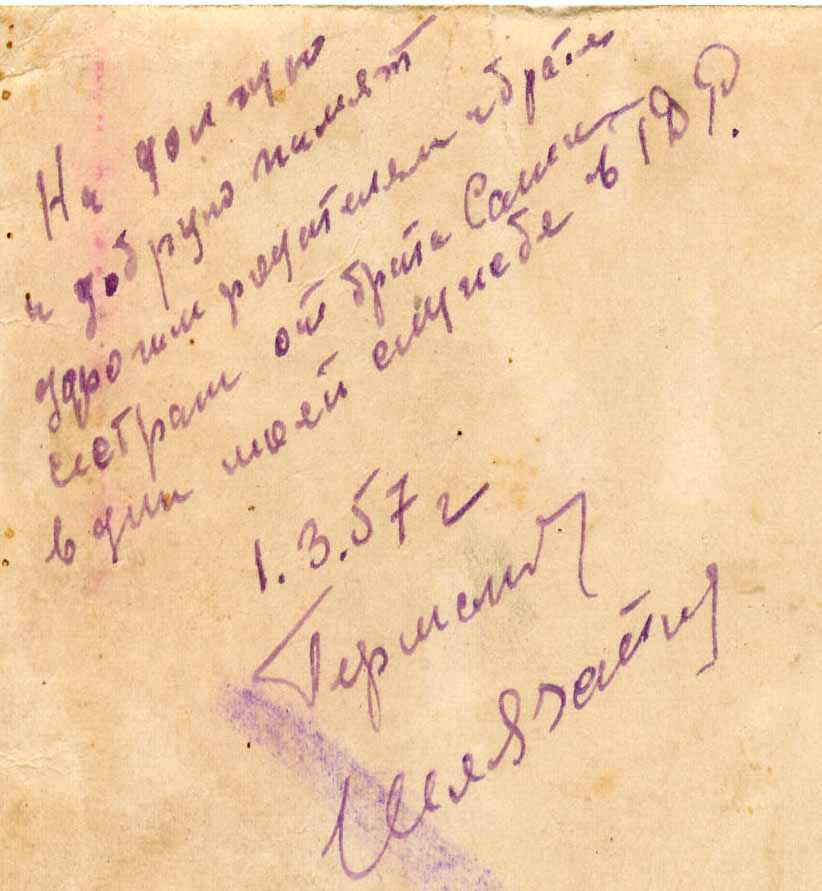 На долгую
и добрую память
дорогим родителям и братьям
сестрам от брата Саши
в дни моей службе в ГДР.
1.3.57 г
Германия